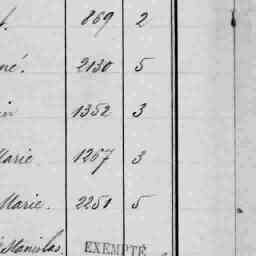 t. 869 2
né. 2130 5
in 1352 3
Marie 1267 3
Marie. 2251 5
Stanislas. EXEMPTÉ